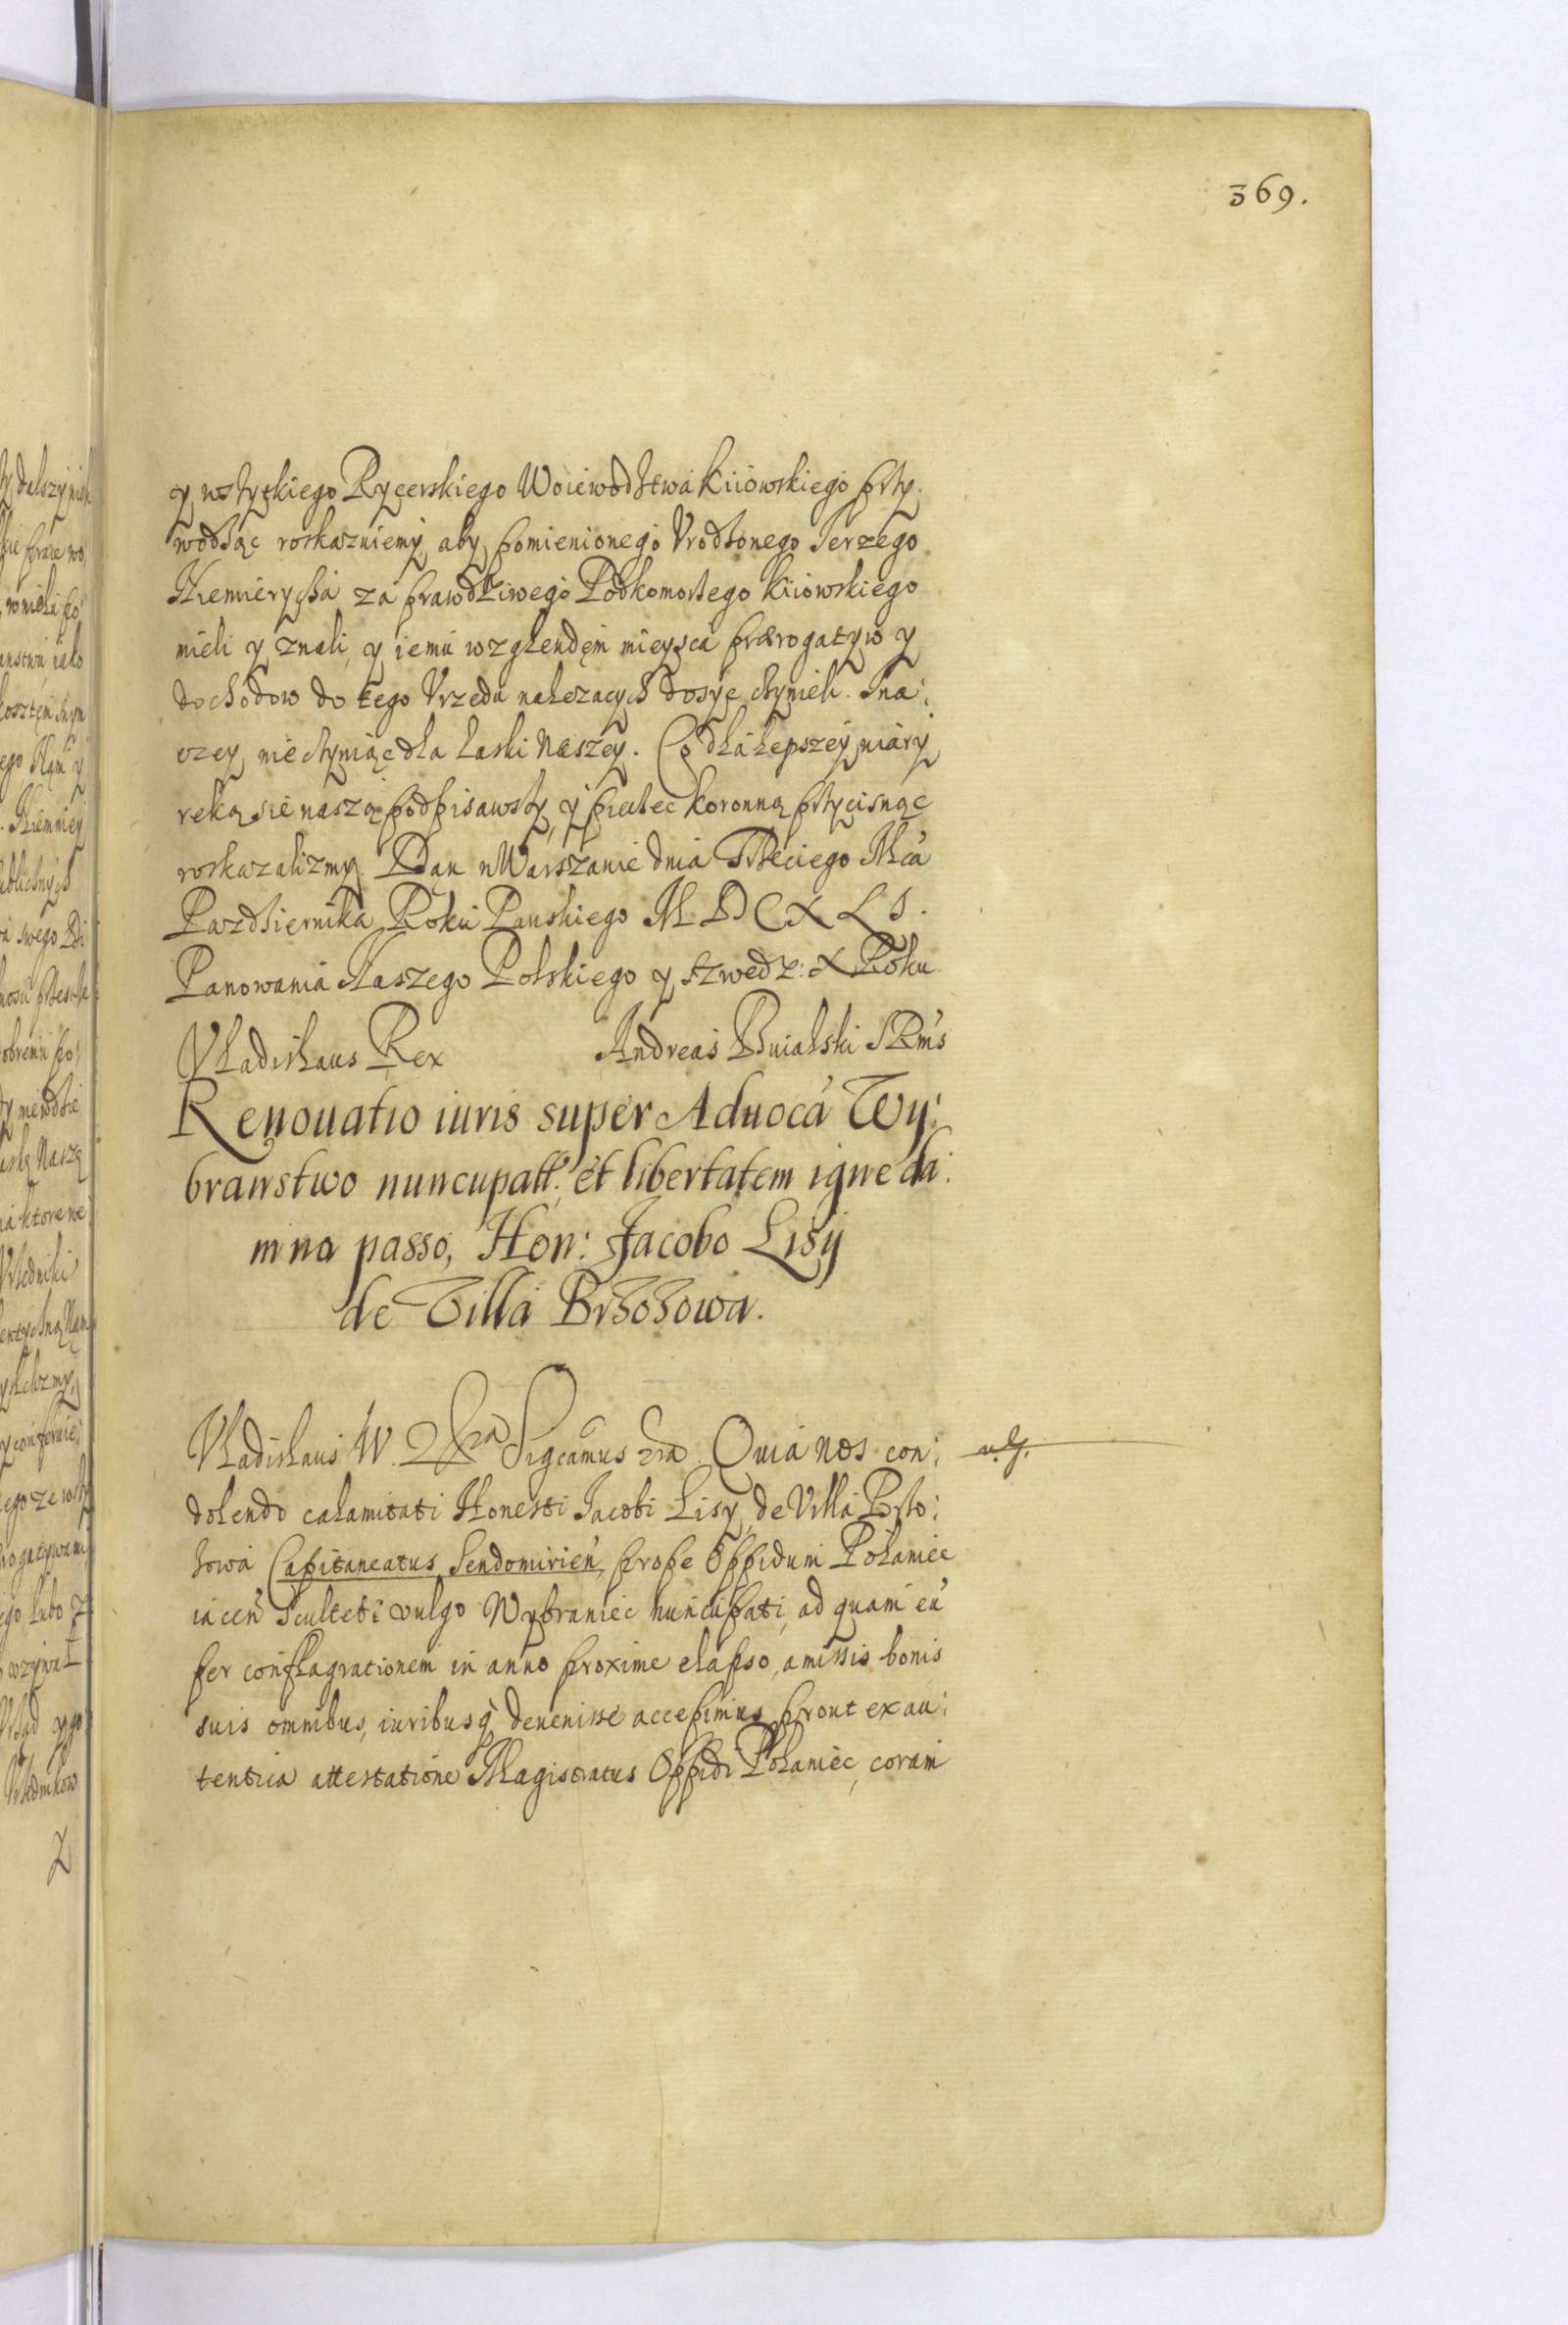 369.
y wszyskiego Rycerskiego Woiewodztwa Kiiowskiego przy:
wodząc roskazuiemy, aby pomienionego Vrodzonego Jerzego
Niemierycza za prawdziwego Podkomorzego Kiiowskiego
mieli y znali, y iemu wzglendem mieysca prærogatyw y
dochodow do tego Vrzedu nalezacych dosyc czynieli. Ina:
czey nie czyniąc dla łaski Naszey. Co dla lepszey wiary
ręką się naszą podpisawszy, y pieczec koronną przycisnąc
roskazalizmy. Dan w Warszawie dnia Trzeciego Mca
Pazdziernika Roku Panskiego MDCXLI.
Panowania Naszego Polskiego y szwedz: X Roku
Vladislaus Rex Andreas Bnialski SRMs
Renouatio iuris super Aduoca Wy:
branstwo nuncupatt: et libertatem igne da:
mna passo, Hon: Jacobo Lisy
de Villa Brzozowa.
Vladislaus IV. Dei gra Sigcamus ūra. Quia nos con:
dolendo calamitati Honesti Jacobi Lisy, de Villa Brzo:
zowa Capitaneatus Sendomirien, prope Oppidum Polaniec
iacen Sculteti vulgo Wybraniec nuncupati, ad quam eū
per conflagrationem in anno proxime elapso, amissis bonis
suis omnibus, iuribusq deuenisse accepimus prout ex au:
tentica attestatione Magistratus Oppidi Polaniec, coram